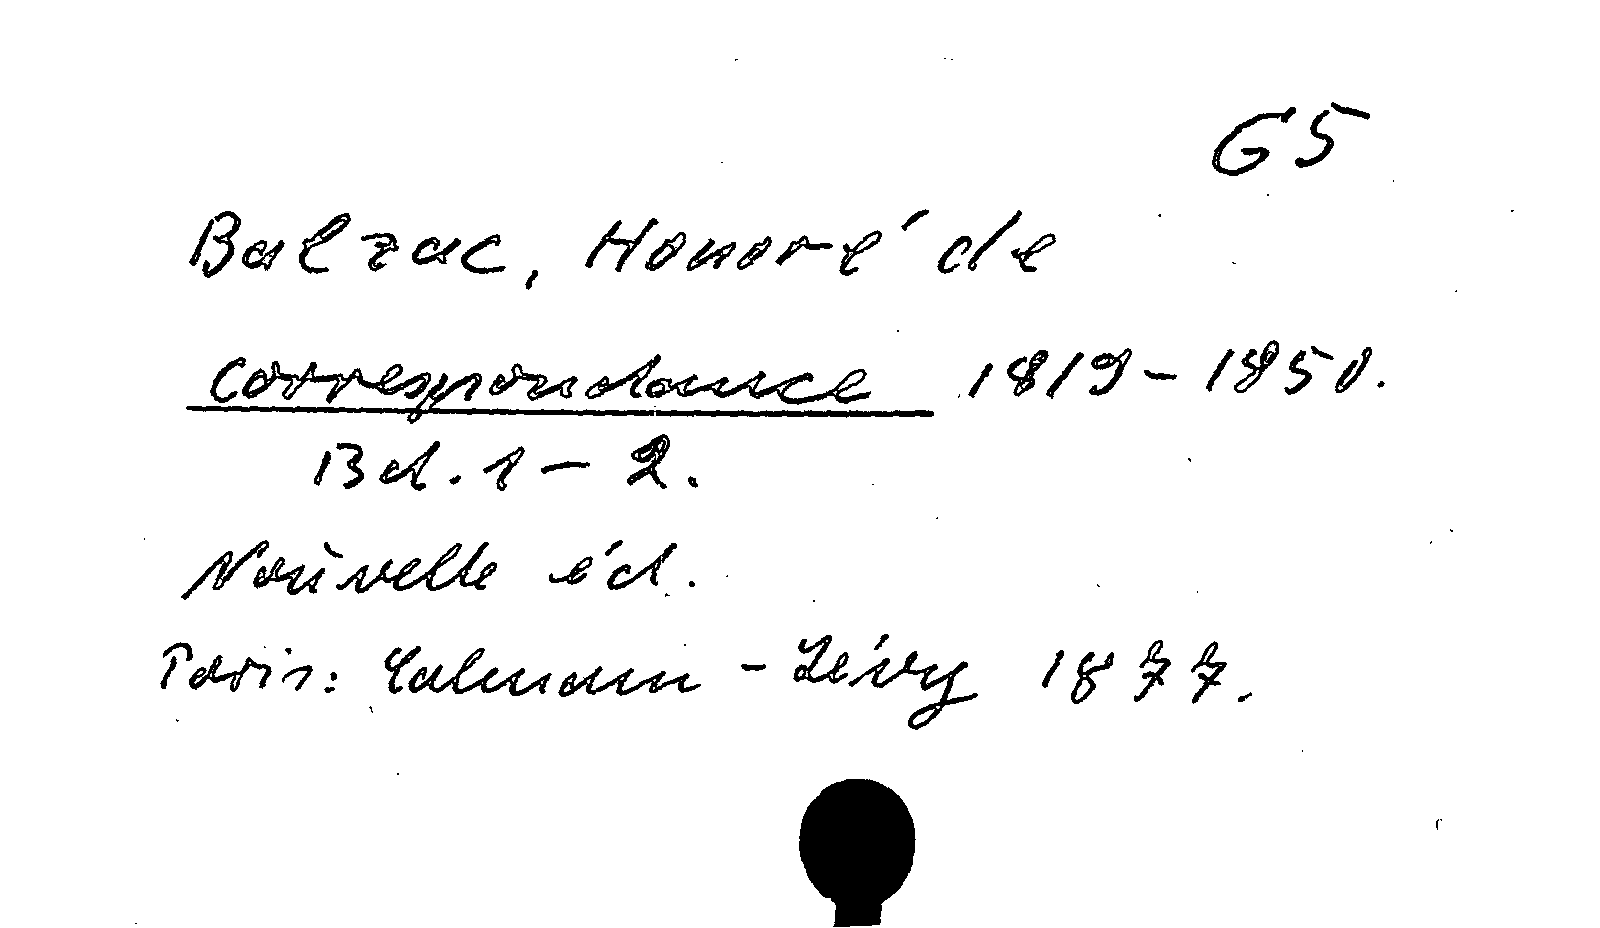 G5
Balzac, Honoré de
Correspondance 1819-1850.
Bd. 1-2.
Nouvelle éd.
Paris: Calmann-Lévy 1877.